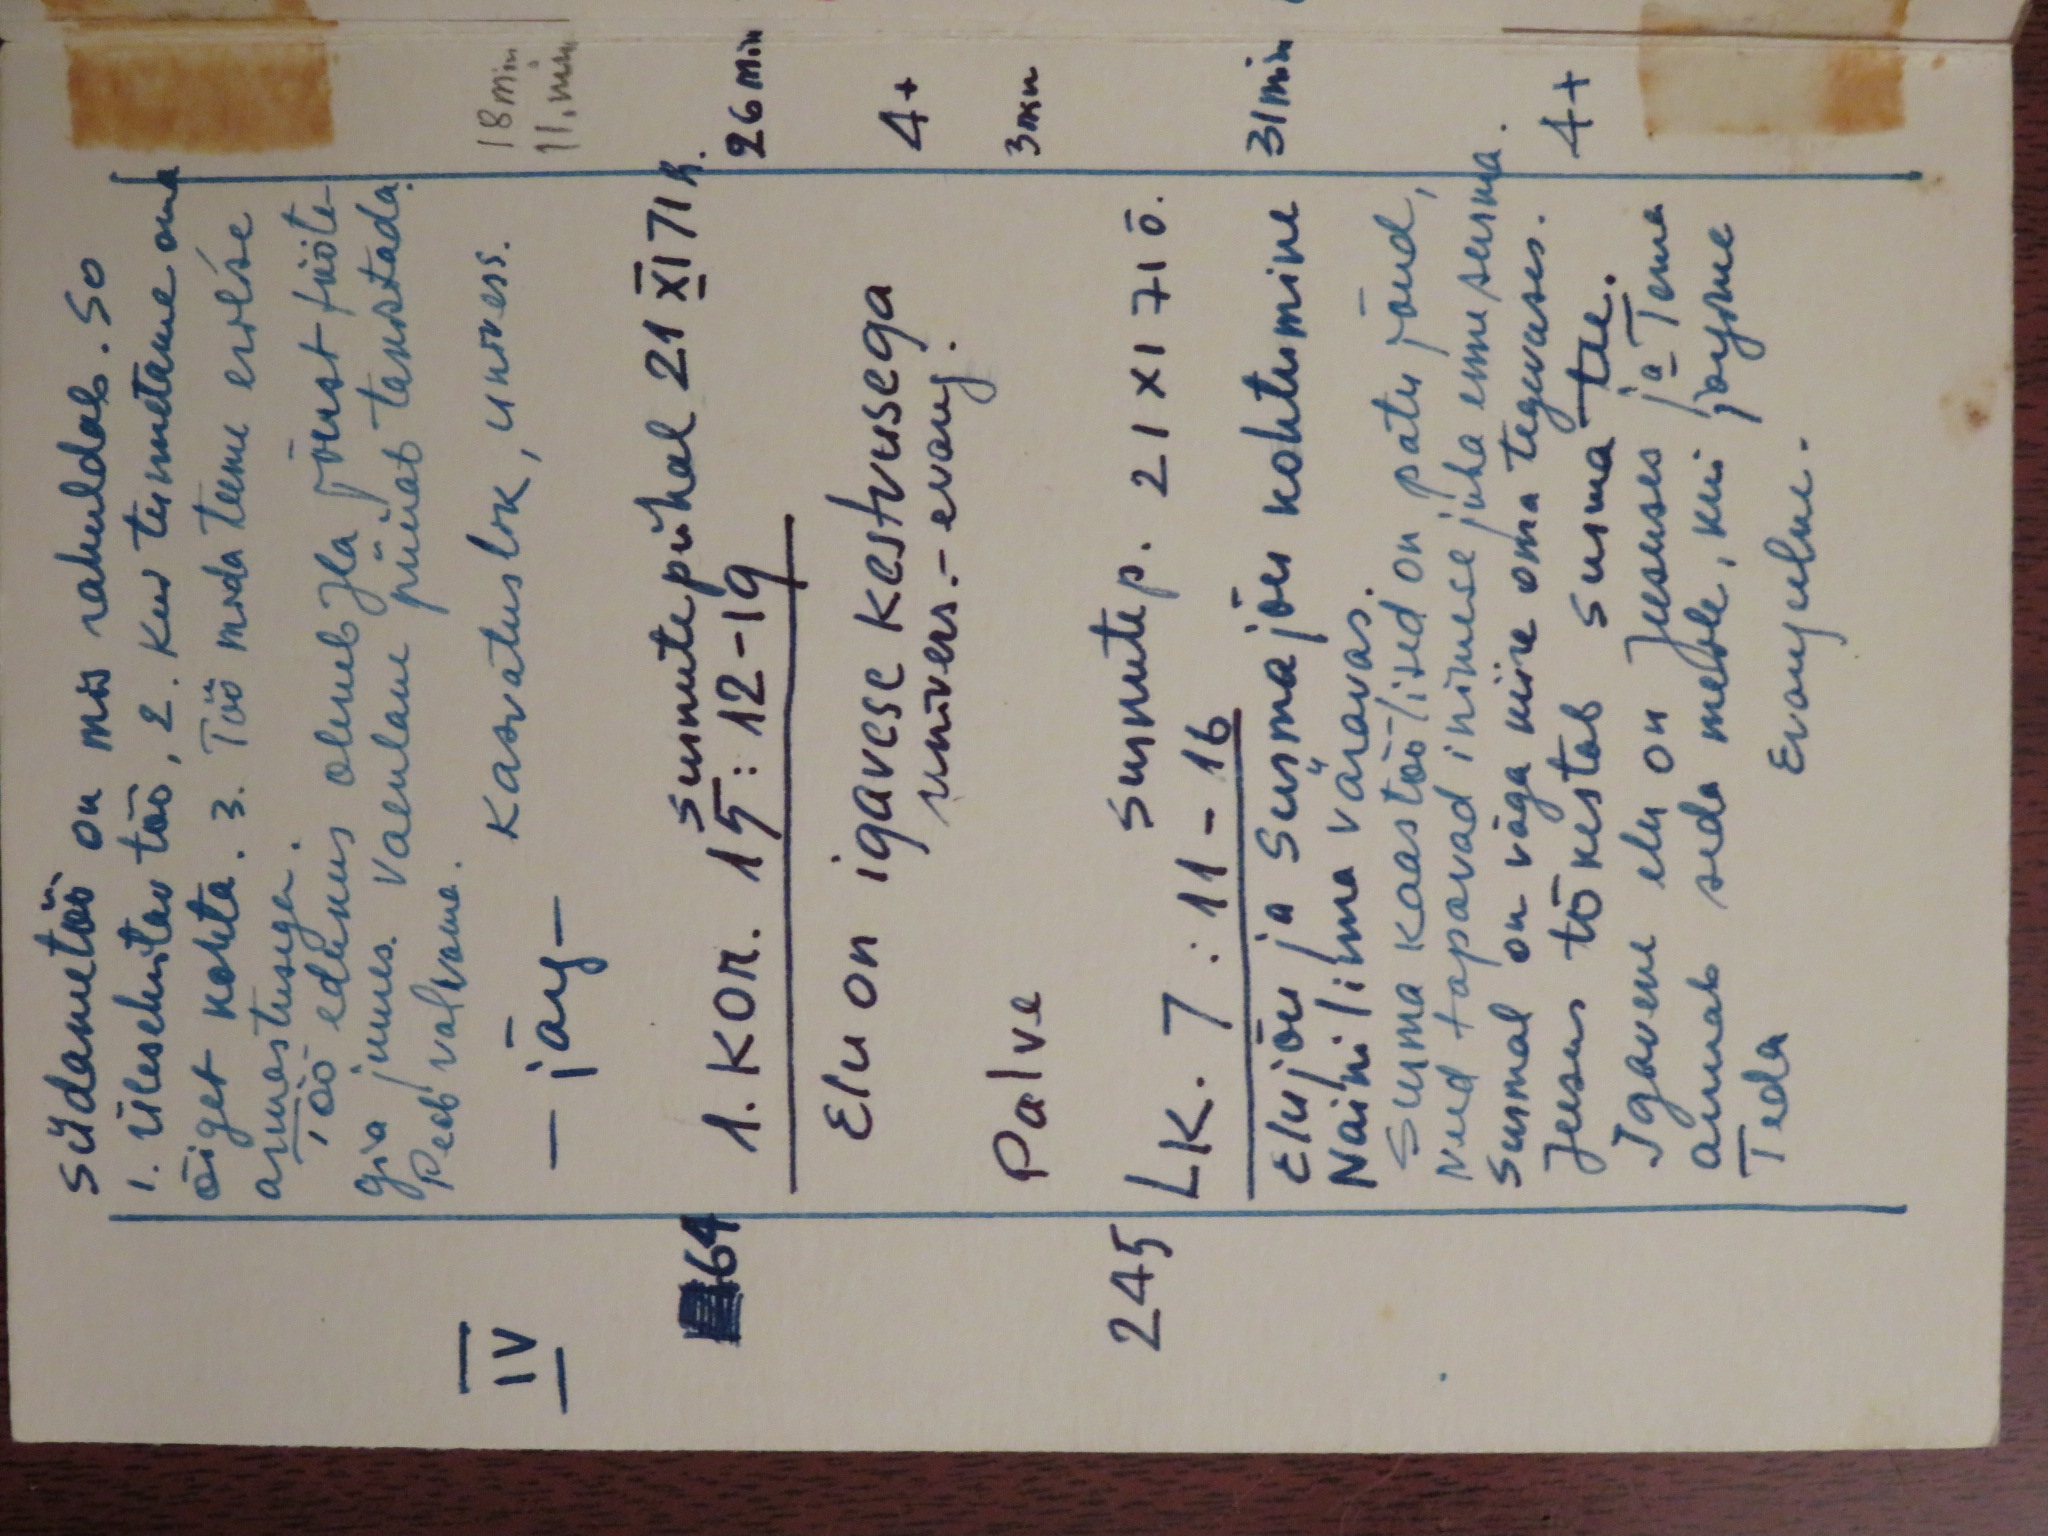 südametöö on mis rahuldab. So
1. Ülesehitav töö, 2. Kus tunnetame oma
õiget kohta. 3. Töö mida teeme
armastusega.
Töö edenus oleneb
gia juures. Vaenlane püüab takistada.
Peab valvama.
18 min
Kasvatuslik, univers.
IV
11. nim
- järg -
surnutepühal 21 XI 71 h.
64
1. Kor. 15: 12-19
26 min
Elu on igavese kestvusega
4+
univers.- evang.
Palve
3 min
surnutep. 21 XI 71 õ.
245
LK. 7: 11-16
31 min
Elujõu ja surmajõu kohtumine
Naini linna väravas.
Surma kaastöölised on patu jõud,
Need tapavad inimese juba enne surma.
Surmal on väga kiire oma tegevuses.
Jeesus tõkestab surma tee.
4+
Igavene elu on Jeesuses ja Tema
annab seda meile, kui
Teda
Evangeelne.